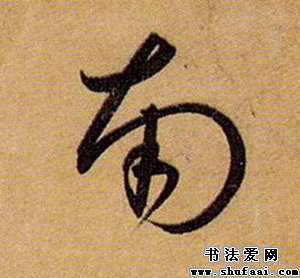 南
书法爱网
www.shufaai.com